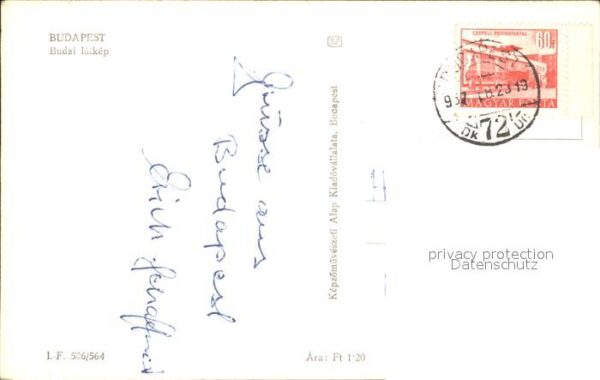 BUDAPEST
Budai látkép
Grüsse aus
Budapest
Erich
Képzőművészeti Alap Kiadóvállalata, Budapest
60f
MAGYAR POSTA
72
privacy protection
Datenschutz
I. F. 506/564
Ára: Ft 1·20